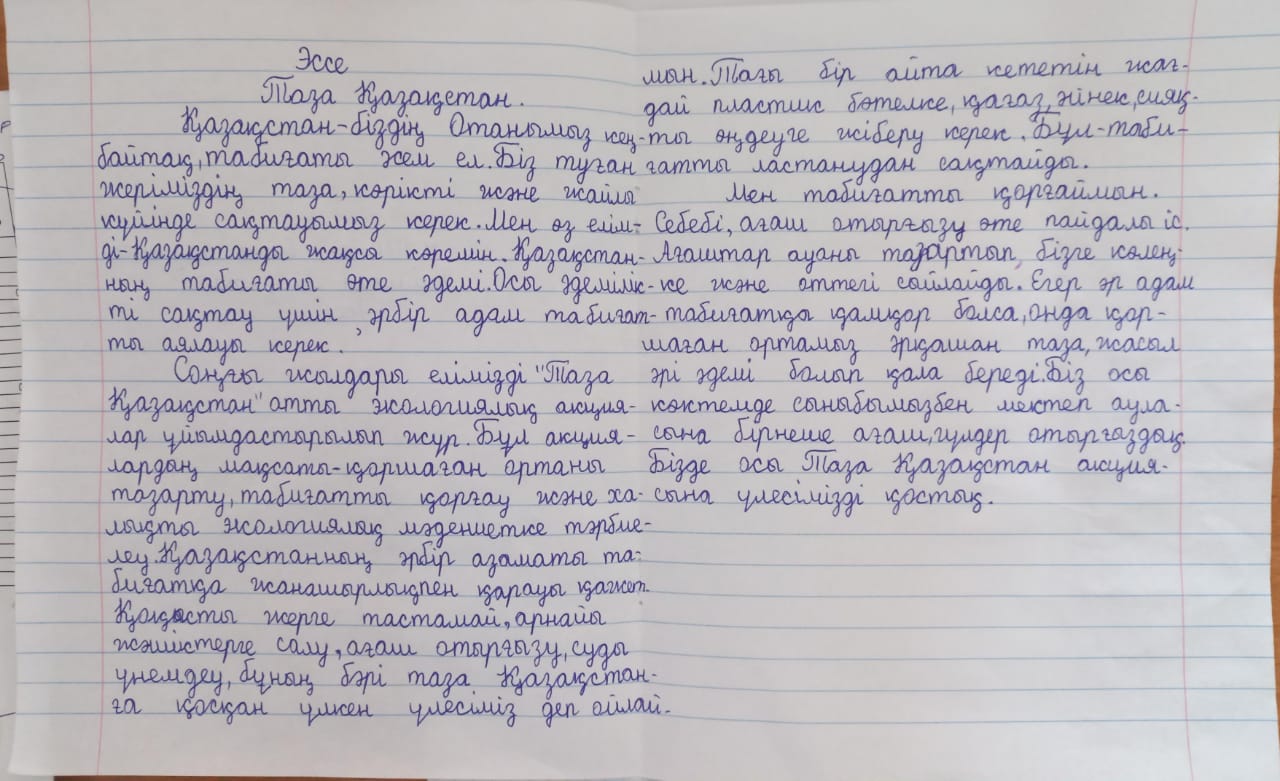 Эссе
Таза Қазақстан.
Қазақстан-біздің Отанымыз кең-
байтақ, табиғаты әсем ел. Біз туған
жеріміздің таза, көрікті және жайлы
күйінде сақтауымыз керек. Мен өз елім-
ді-Қазақстанды жақсы көремін. Қазақстан-
ның табиғаты өте әдемі. Осы әділік-
ті сақтау үшін, әрбір адам табиғат-
ты аялауы керек.
Соңғы жылдары елімізді "Таза
Қазақстан" атты экологиялық акция-
лар ұйымдастырылып жүр. Бұл акция-
лардың мақсаты-қоршаған ортаны
тазарту, табиғатты қорғау және ха-
лықты экологиялық мәдениетке тәрбие-
леу. Қазақстанның әрбір азаматы та-
биғатқа жанашырлықпен қарауы қажет.
Қоқысты жерге тастамай, арнайы
жәшіктерге салу, ағаш отырғызу, суды
үнемдеу, бұның бәрі таза Қазақстан-
ға қосқан үлкен үлесіміз деп ойлай-
мын. Тағы бір айта кететін жағ-
дай пластик бөтелке, қағаз, әйнек, сияқ-
ты өңдеуге жіберу керек. Бұл-таби-
ғатты ластанудан сақтайды.
Мен табиғатты қорғаймын.
Себебі, ағаш отырғызу өте пайдалы іс.
Ағаштар ауаны тазартып, бізге көлең-
ке және оттегі сыйлайды. Егер әр адам
табиғатқа қамқор болса, онда қор-
шаған ортамыз әрқашан таза, жасыл
әрі әдемі болып қала береді. Біз осы
көктемде сыныбымызбен мектеп аула-
сына бірнеше ағаш, гүлдер отырғаздық
Бізде осы Таза Қазақстан акция-
сына үлесімізді қостық.